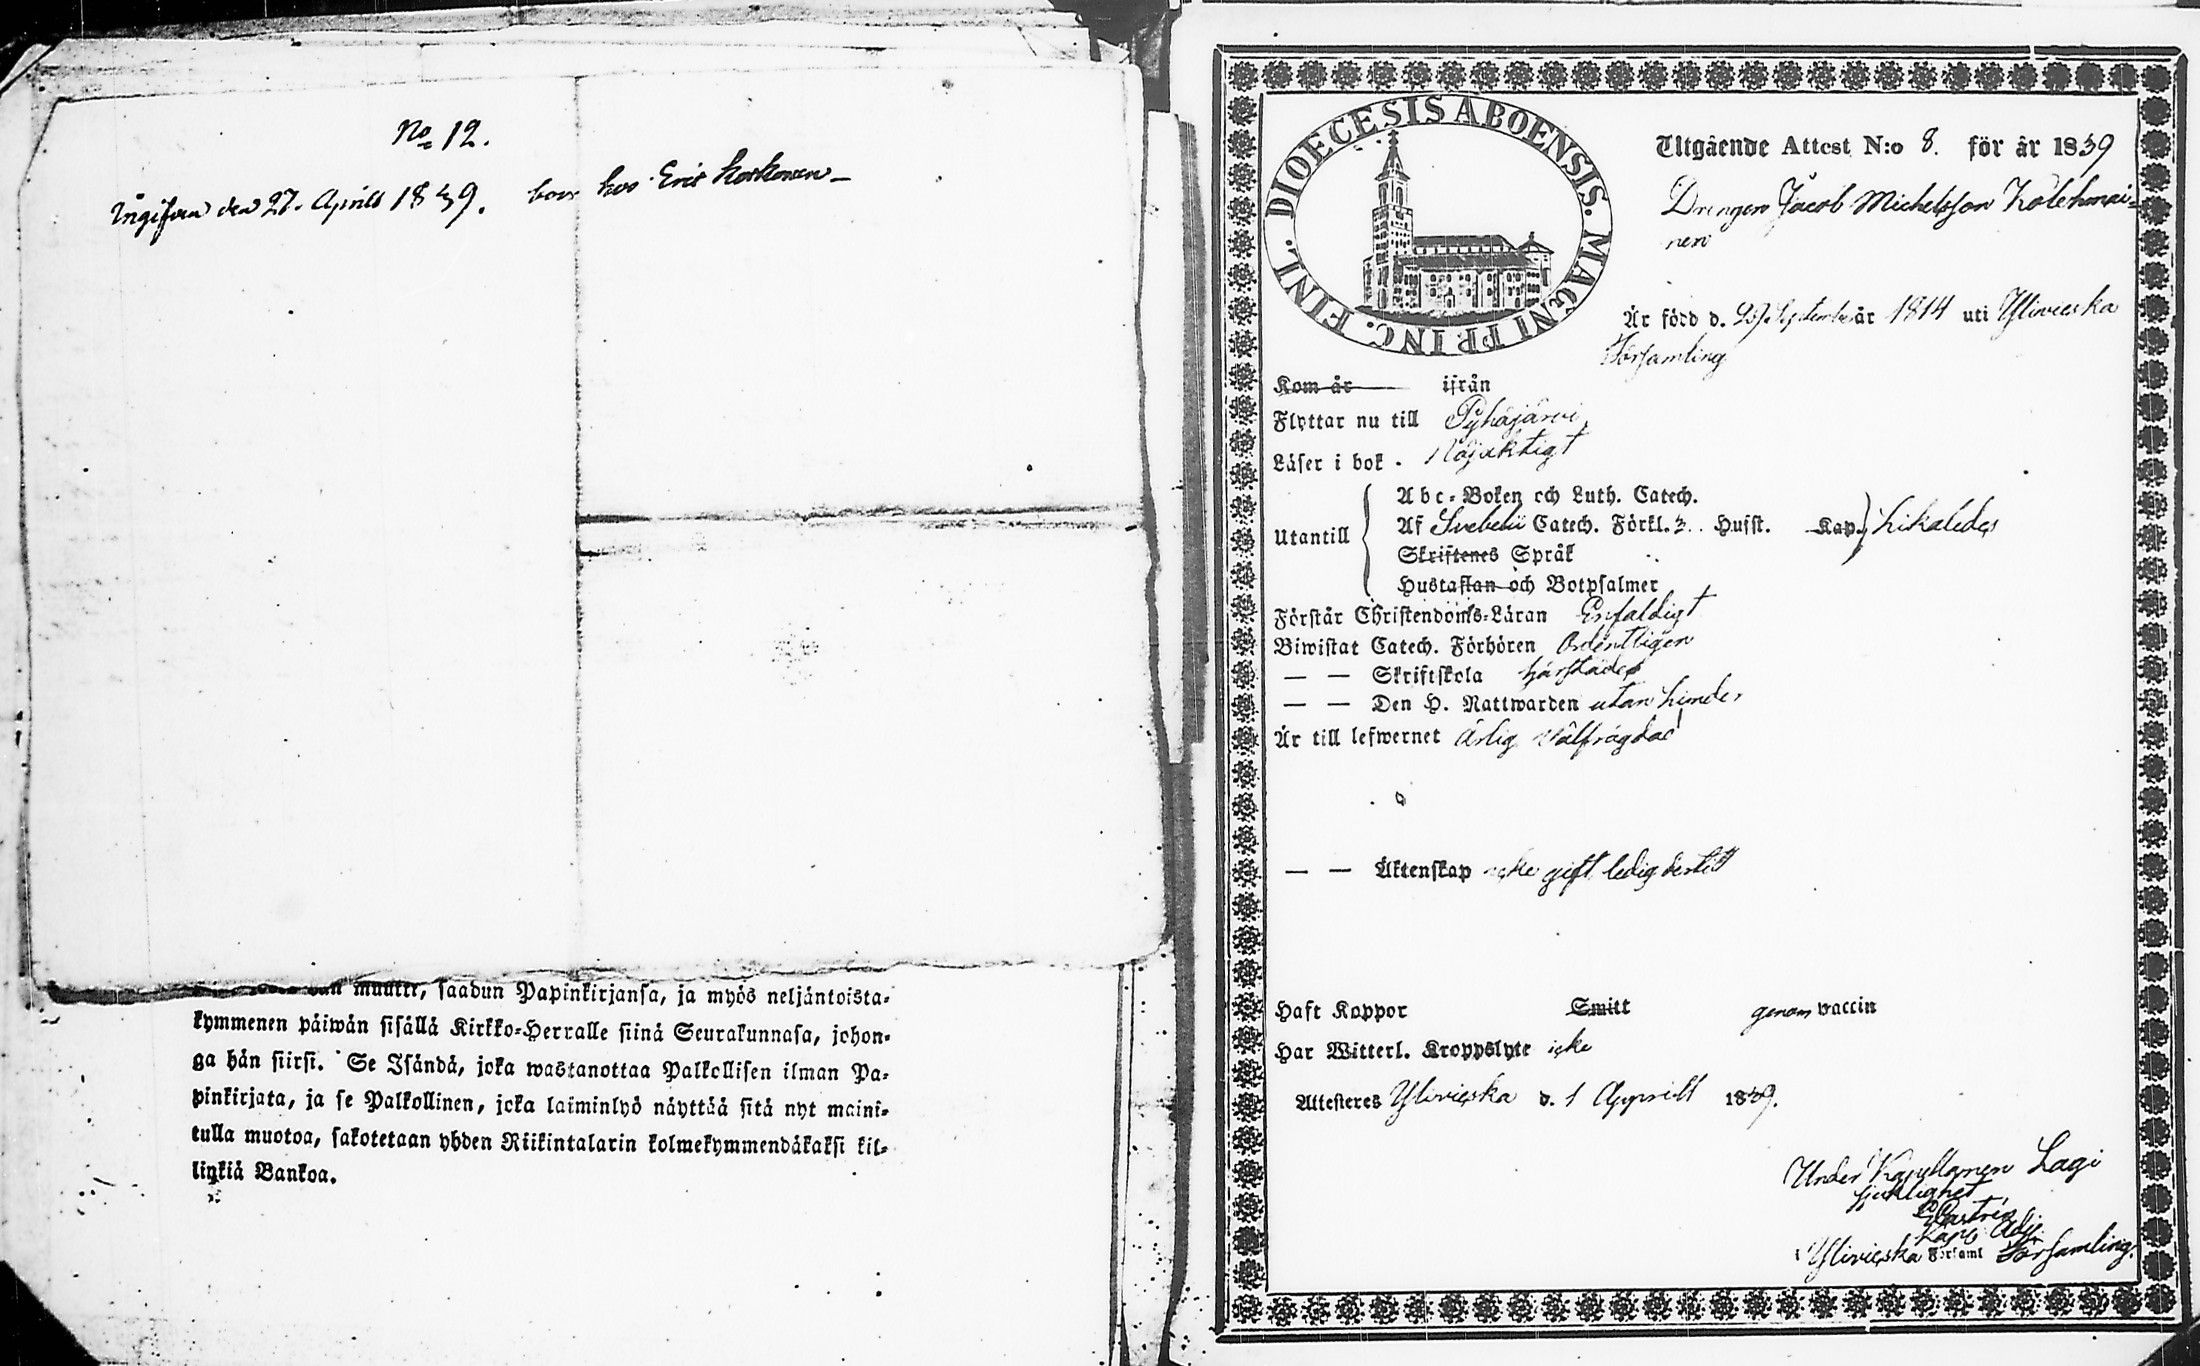 No 12.
Ingifven den 27. Aprill 1839. boor hos Eric Korkonen
muutti, saadun Papinkirjansa, ja myös neljäntoista-
kymmenen päiwän sisällä Kirkko-Herralle siinä Seurakunnasa, johon-
ga hän siirsi. Se Isändä, joka wastanottaa Palkollisen ilman Pa-
pinkirjata, ja se Palkollinen, joka laiminlyö näyttää sitä nyt maini-
tulla muotoa, sakotetaan yhden Riikintalarin kolmekymmendäkaksi kil-
lingiä Bankoa.
DIOECESIS ABOENSIS. MAGNI PRINC. FINL.
Utgående Attest N:o 8. för år 1839
Drengen Jacob Michelsson Kolehmai-
nen
Är född d. 29 September år 1814 uti Ylivieska
Församling
Kom år ifrån
Flyttar nu till Pyhäjärvi
Läser i bok. Nöjaktigt
Utantill
Abc-Boken och Luth. Catech.
Af Svebelii Catech. Förkl. 3. Husst. Kap. Likaledes
Skriftenes Språk
Hustaflan och Botpsalmer
Förstår Christendoms-Läran Enfaldigt
Biwistat Catech. Förhören Ordentligen
— — Skriftskola härstädes
— — Den H. Nattwarden utan hinder
Är till lefwernet ärlig välfrägdad
— — Äktenskap icke gift ledig dertill
Haft Koppor Smitt genom vaccin
Har Witterl. Kroppslyte icke
Attesteres Ylivieska d. 1 Apprill 1839.
Under Kapellanen Lagi
sjuklighet
Kap. Adj.
i Ylivieska Forsaml Församling.